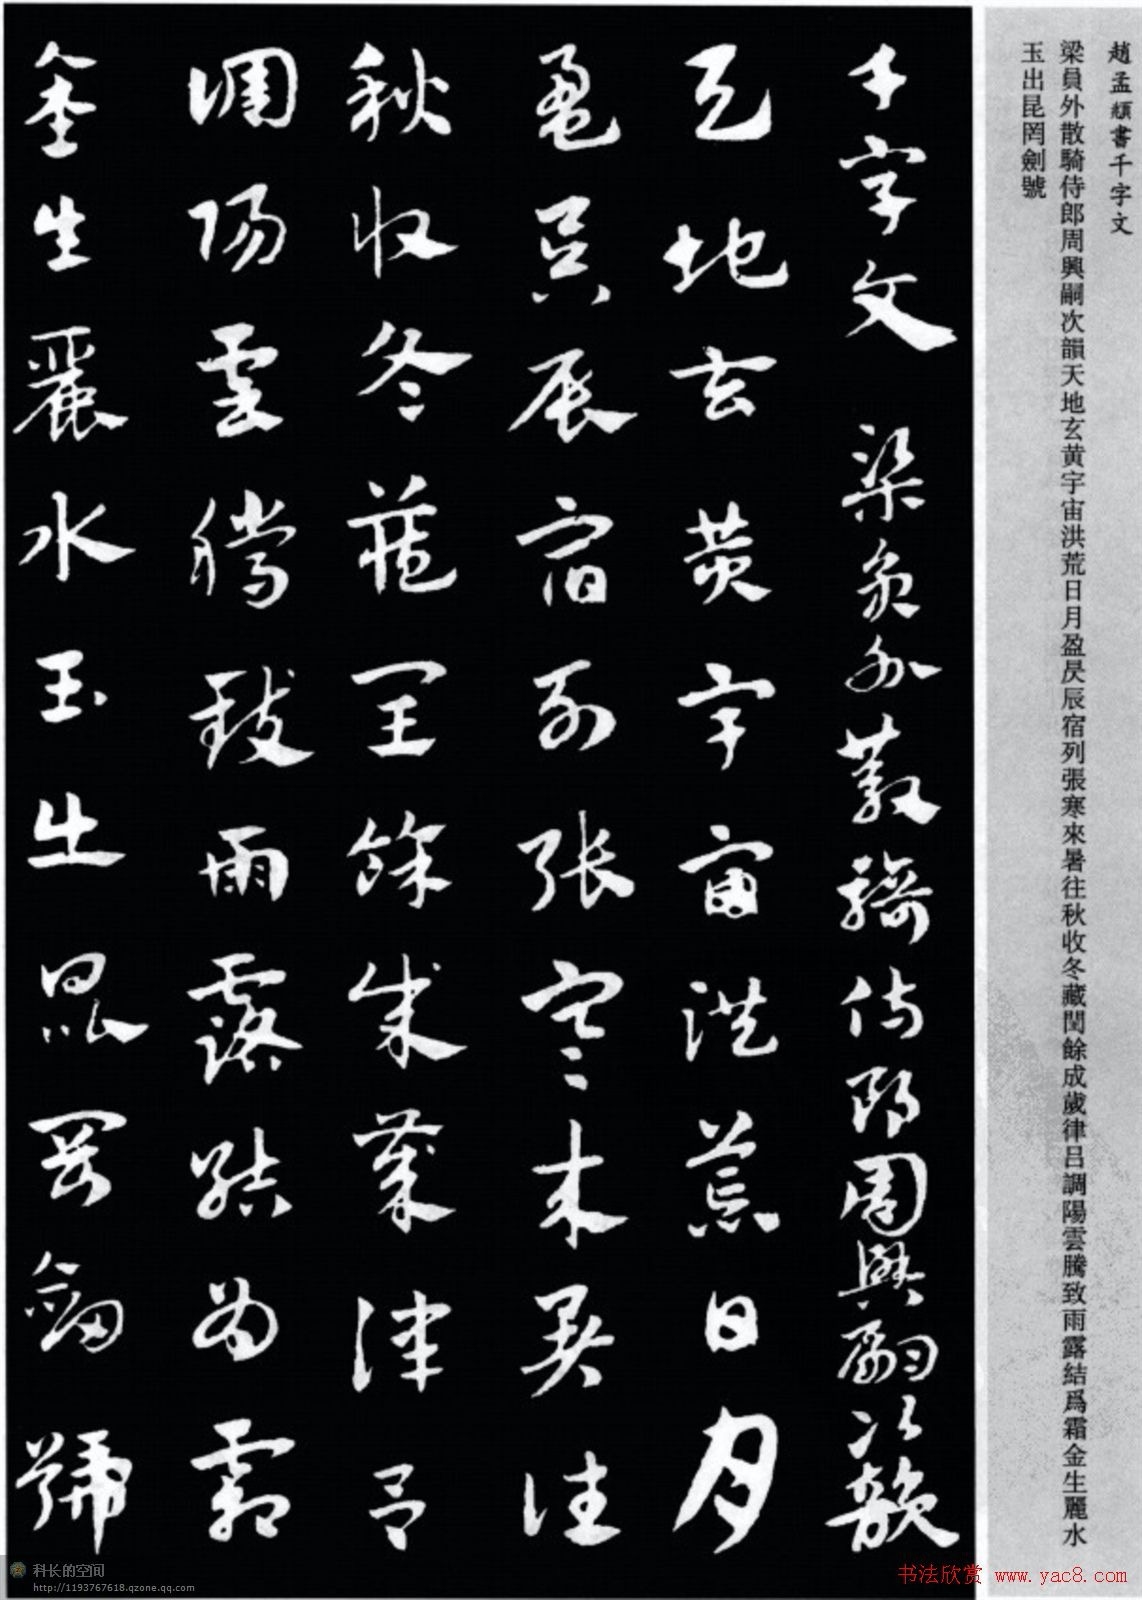 趙孟頫書千字文
梁員外散騎侍郎周興嗣次韻天地玄黄宇宙洪荒日月盈昃辰宿列張寒來暑往秋收冬藏閏餘成歲律吕調陽雲騰致雨露結爲霜金生麗水
玉出昆罔劍號
千字文 梁員外散騎侍郎周興嗣次韻
天地玄黄宇宙洪荒日月
盈昃辰宿列張寒来暑往
秋收冬藏閏餘成歲律吕
調陽雲騰致雨露結為霜
金生麗水玉出昆罔劍號
科长的空间
http://1193767618.qzone.qq.com
书法欣赏 www.yac8.com